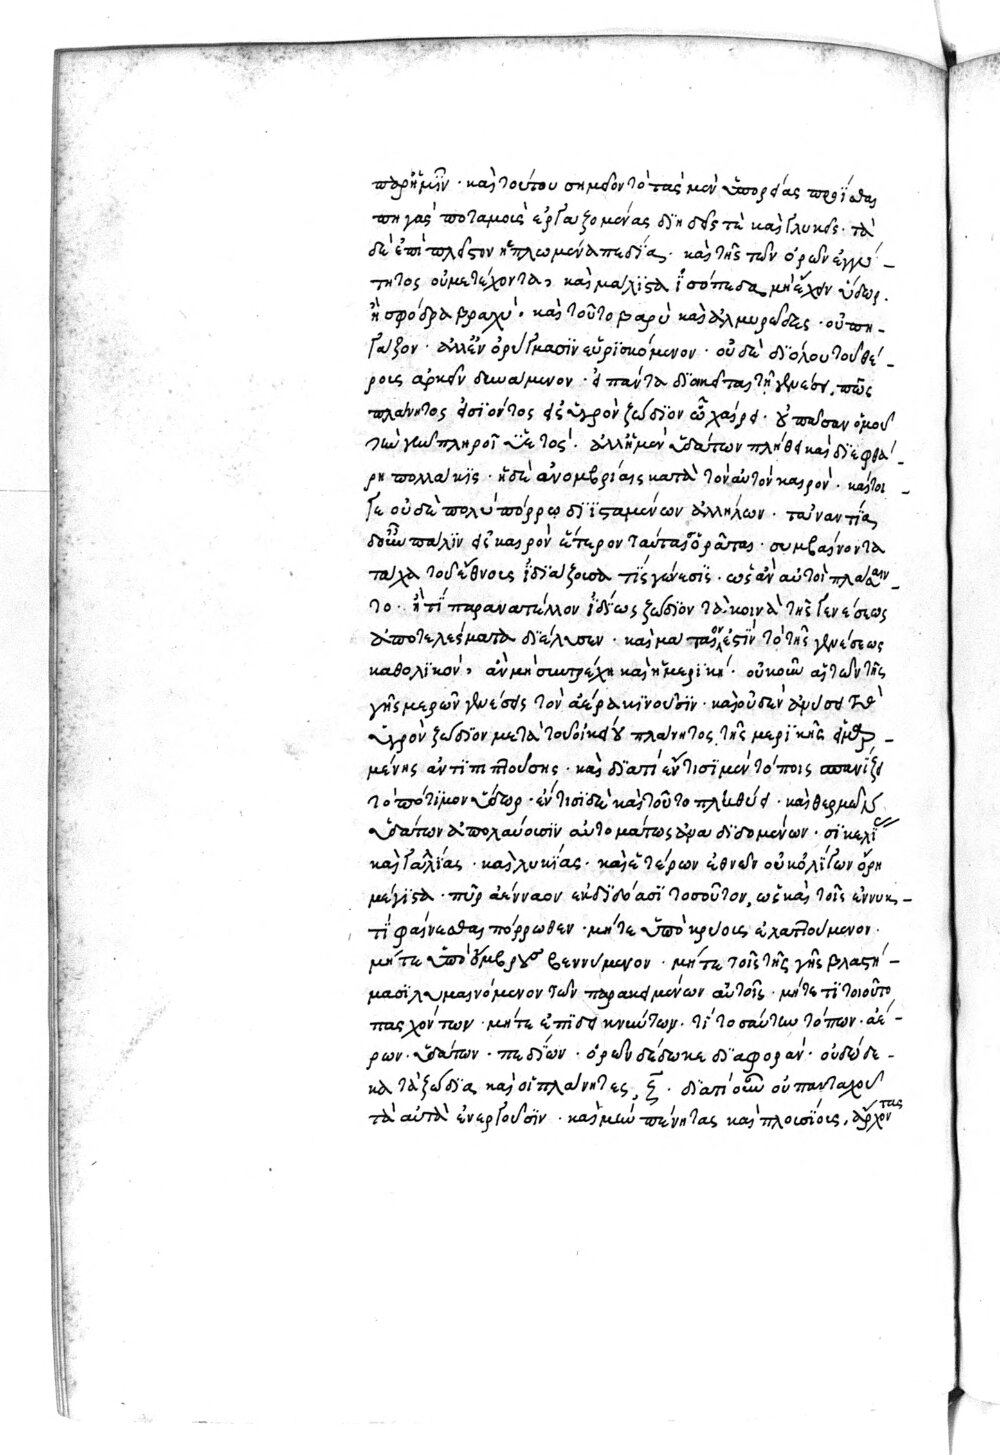 παρ' ἡμῖν · καὶ τούτου σημεῖον τὸ τὰς μὲν ὑπωρείας προΐεσθαι
πηγὰς ποταμοὺς ἐργαζομένας διηδεῖς τὲ καὶ γλυκεῖς · τὰ
δὲ ἐπὶ πλεῖστον ἡπλωμένα πεδία · καὶ τῆς τῶν ὀρῶν ἐγγύ-
τητος οὐ μετέχοντα, καὶ μάλιστα ἰσόπεδα, μὴ ἔχειν ὕδωρ.
ἢ σφόδρα βραχύ, καὶ τοῦτο βαρὺ καὶ ἁλμυρῶδες · οὐ πη-
γάζον · ἀλλ' ἐν ὀρύγμασιν εὑρισκόμενον · οὐδὲ δι' ὅλου τοῦ θέ-
ρους ἀρκεῖν δυνάμενον · εἰ πάντα διοικεῖται τῇ γενέσει, πῶς
πλάνητος εἰσιόντος εἰς ὑγρὸν ζώδιον ὧ χαίρει · οὐ πᾶσαν ὁμοῦ
τὴν γῆν πληροῖ ὑετός · ἀλλ' ἡ μὲν ὑδάτων πλήθει καὶ διεφθά-
ρη πολλάκις · ἡ δὲ ἀνομβρίαις κατὰ τὸν αὐτὸν καιρόν · καίτοι
γε οὐδὲ πολὺ πόρρω διϊσταμένων ἀλλήλων · τἀναντία
δ' οὖν πάλιν εἰς καιρὸν ἕτερον ταύταις ὁρᾶται · συμβαίνοντα
τάχα τοῦ ἔθνους ἰδιάζουσα τίς γένεσις · ὡς ἂν αὐτοὶ πλάσαιν-
το · ἤ τι παρανατέλλον ἰδίως ζώδιον τὰ κοινὰ τῆς γενέσεως
ἀποτελέσματα διέλυσεν · καὶ μάταιόν ἐστιν τὸ τῆς γενέσεως
καθολικόν, ἂν μὴ συντρέχῃ καὶ ἡ μερική · οὐκοῦν αἱ τῶν τῆς
γῆς μερῶν γενέσεις τὸν ἀέρα κινοῦσιν · καὶ οὐδὲν ἀνύσει τὸ
ὑγρὸν ζώδιον μετὰ τοῦ οἰκείου πλάνητος τῆς μερικῆς εἱμαρ-
μένης ἀντιπιπτούσης · καὶ διατί ἔν τισι μὲν τόποις σπανίζει
τὸ πότιμον ὕδωρ · ἔν τισι δὲ καὶ τοῦτο πληθύει · καὶ θερμῶν
ὑδάτων ἀπολαύουσιν αὐτομάτως ἄνω διδομένων · σικελί
καὶ γαλλίας · καὶ λυκίας · καὶ ἑτέρων ἐθνῶν οὐκ ὀλίγων ὄρη
μέγιστα · πῦρ ἀένναον ἐκδιδόασι τοσοῦτον, ὡς καὶ τοῖς ἐννυκ-
τι φαίνεσθαι πόρρωθεν · μήτε ὑπὸ κρύους ἐλαττούμενον ·
μήτε ὑπὸ ὄμβρου σβεννύμενον · μήτε τοῖς τῆς γῆς βλαστή-
μασι λυμαινόμενον τῶν παρακειμένων αὐτοῖς · μήτε τι τοιοῦτο
πασχόντων · μήτε ἐπιδεικνύντων · τί τοσαύτην τόπων · ἀέ-
ρων · ὑδάτων · πεδίων · ὀρῶν δέδωκε διαφοράν · οὐ δώδε-
κα τὰ ζώδια, καὶ οἱ πλάνητες, ζ · διατί οὖν οὐ πανταχοῦ
τὰ αὐτὰ ἐνεργοῦσιν · καὶ μὴν πένητας καὶ πλουσίους, ἄρχοντας